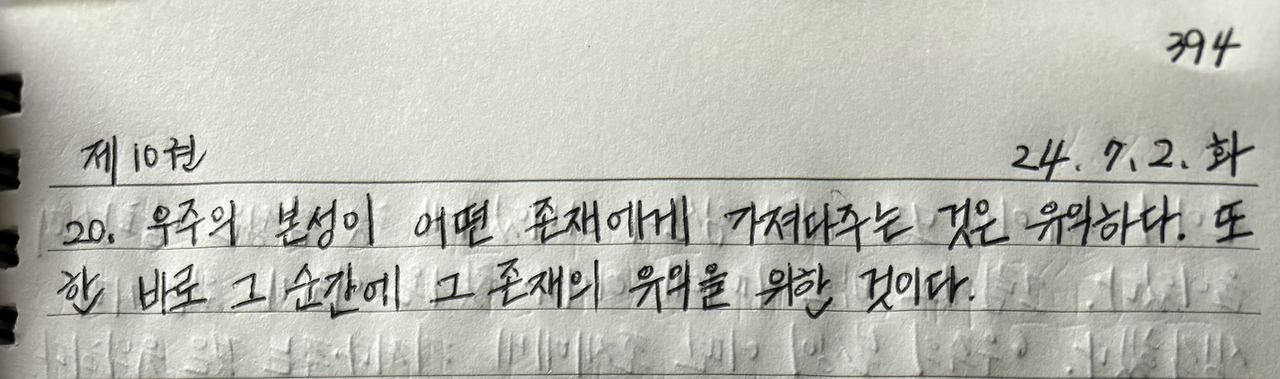 394
제 10권 24. 7. 2. 화
20. 우주의 본성이 어떤 존재에게 가져다주는 것은 유익하다. 또
한 바로 그 순간에 그 존재의 유익을 위한 것이다.